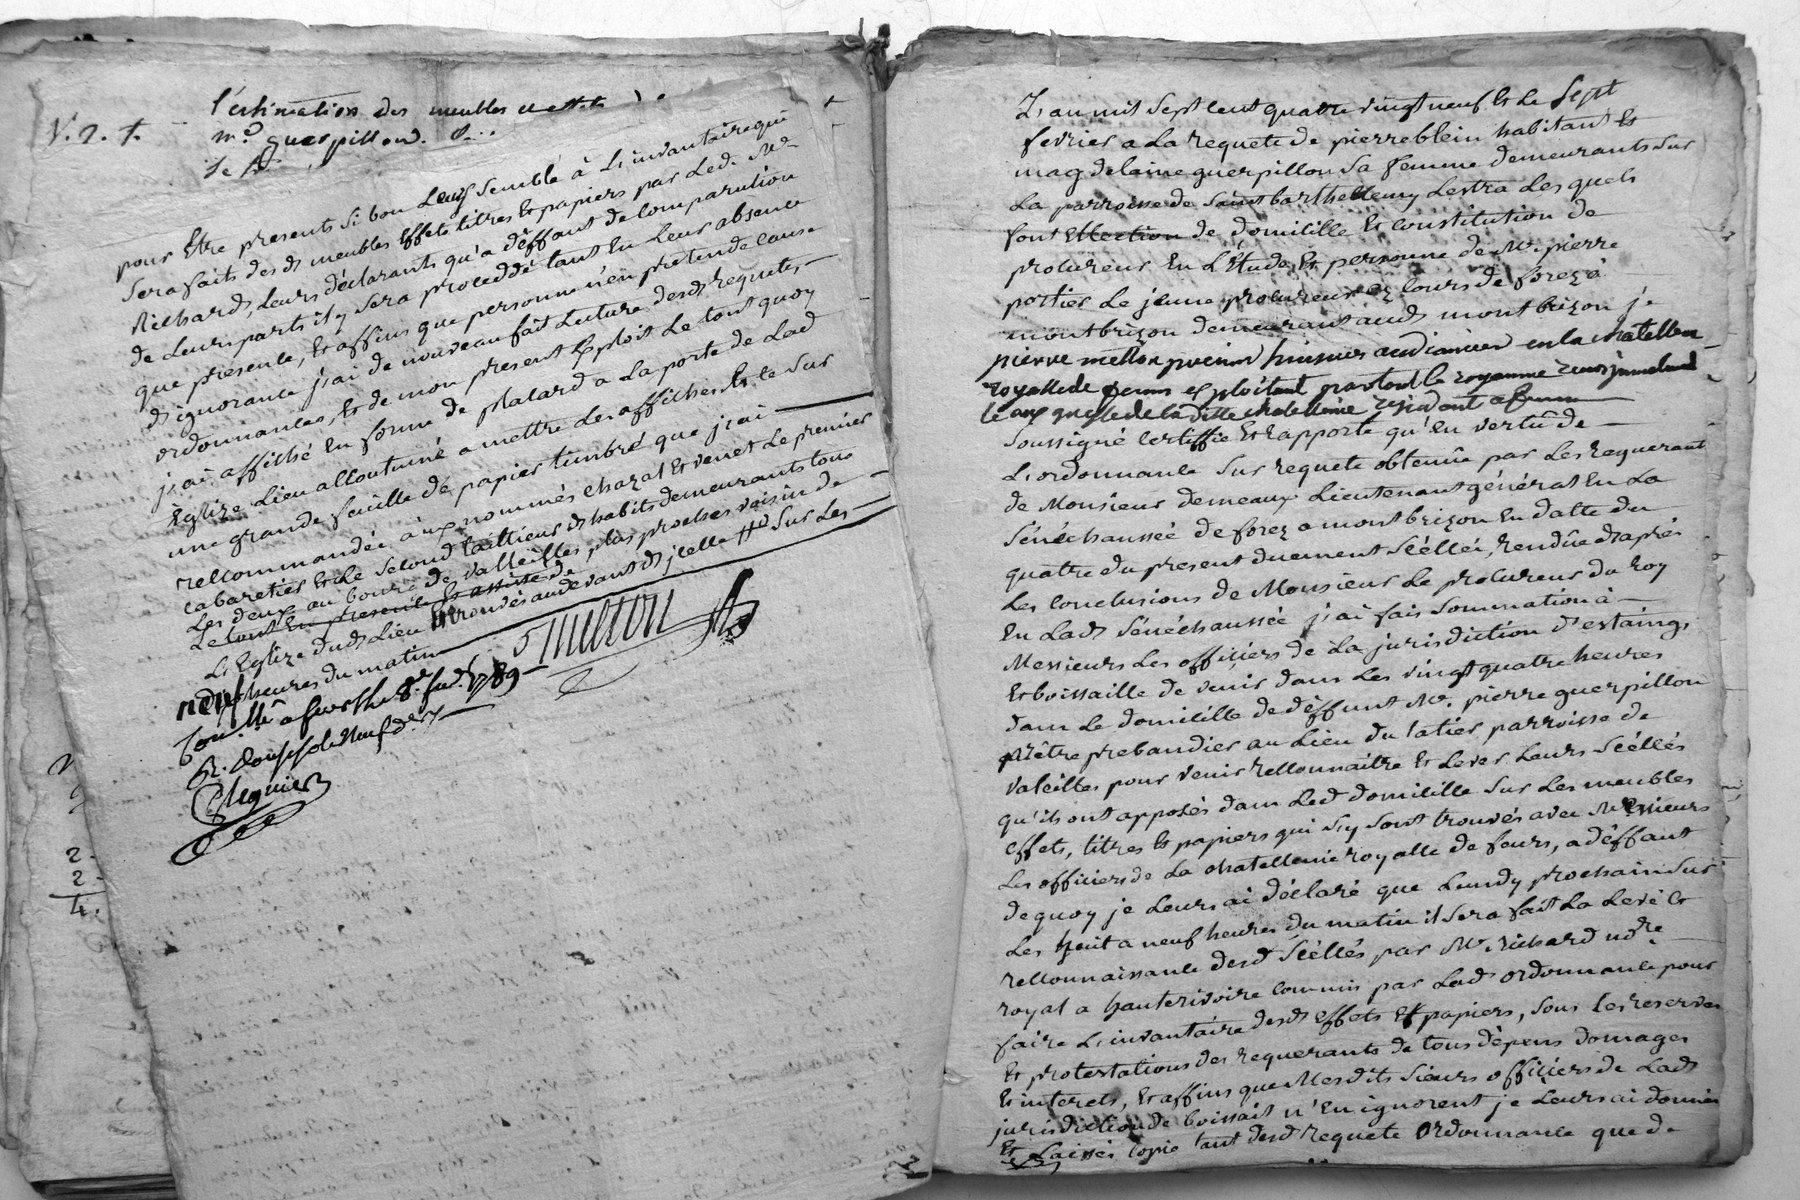 V. 2. t.
l'estimation des meubles et effets de
mr. guerpillon.
pour Etre presents si bon Leurs semble à L'invantaire qui
sera faits desds meubles Effets titres Et papiers par Led. Mr
Richard, Leurs déclarants qu'a déffaut de Comparution
de Leurs parts il y sera proceddé tant En Leur absence
que presence, Et affins que personne n'en pretende cause
d'ignorance j'ai de nouveau fait Lecture desds requetes,
ordonnances, Et de mon present Exploit Le tout quoy
j'ai affiché En forme de placard a La porte de Lad
Eglize Lieu accoutumé a mettre Les affiches Et ce sur
une grande feuille de papier timbré que j'ai
reccommandée àux nommés chazal Et venet Le premier
cabaretier Et Le second taillieur d'habits demeurants tous
Les deux au bourg de valleilles, plus proches voisin de
Le tout En presence Et assisté de
L'Eglize dudt Lieu trouvés audevant d'jcelle sur Les
neuf heures du matin
mellon
Con.lle a feurs the 8e fev. 1789
R. douze sols neuf d.
Meynier
L'an mil sept cent quatre vingt neuf Et Le sept
fevrier a La requete de pierre blein habitant Et
magdelaine guerpillon sa femme demeurants sur
La parroisse de saint barthellemy Lestra Les quels
font Ellection de domicille Et constitution de
procureur En L'Etude, Et personne de Mr. pierre
portier Le jeune procureur ez cours de forez à
montbrizon demeurant audt montbrizon je
pierre mellon premier huissier audiancier en la chatellenie
royalle de feurs exploitant par tout le royaume
le aux greffe de la ditte chatellenie residant a feurs
soussigné certiffie Et rapporte qu'En vertû de
L'ordonnance sur requete obtenûe par Les requerant
de Monsieur demeaux Lieutenant général En La
sénéchaussée de forez a montbrizon En datte du
quatre du present duement scéllée, rendûe d'aprés
Les conclusions de Monsieur Le procureur du roy
En Ladt sénéchaussée j'ai fais sommation à
Messieurs Les officiers de La jurisdiction d'estaings
Et boissaille de venir dans Les vingt quatre heures
dans Le domicille de déffunt Mr. pierre guerpillon
prêtre prebandier au Lieu du latier parroisse de
valeilles pour venir reconnaitre Et Lever Leurs scéllés
qu'ils ont apposés dans Led domicille sur Les meubles
effets, titres Et papiers qui s'y sont trouvés avec Messieurs
Les officiers de La chatellenie royalle de feurs, a déffaut
de quoy je Leurs ai déclaré que Lundy prochain sur
Les huit a neuf heures du matin il sera fait La Levé Et
reconnaissance desd scéllés par Mr. Richard nore
royal a hauterivoire commis par Ladt ordonnance pour
faire L'invantaire desds effets Et papiers, sous les reserves
Et protestations des requerants de tous dépens domages
Et interets, Et affins que Mesdits sieurs officiers de Ladt
jurisdiction de boissail n'En ignorent je Leurs ai donnée
Et Laissé copie tant desd requete ordonnance que de